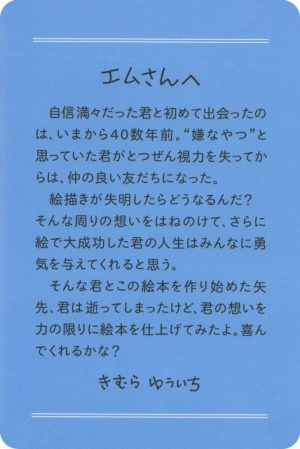 エムさんへ
自信満々だった君と初めて出会ったの
は、いまから40数年前。“嫌なやつ”と
思っていた君がとつぜん視力を失ってか
らは、仲の良い友だちになった。
絵描きが失明したらどうなるんだ？
そんな周りの想いをはねのけて、さらに
絵で大成功した君の人生はみんなに勇
気を与えてくれると思う。
そんな君とこの絵本を作り始めた矢
先、君は逝ってしまったけど、君の想いを
力の限りに絵本を仕上げてみたよ。喜ん
でくれるかな？
きむら ゆういち